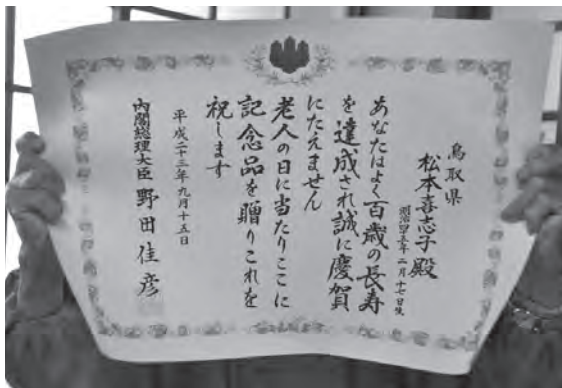 鳥取県
松本喜志子殿
明治四五年二月十七日生
あなたはよく百歳の長寿
を達成され誠に慶賀
にたえません
老人の日に当たりここに
記念品を贈りこれを
祝します
平成二十三年九月十五日
内閣総理大臣 野田佳彦